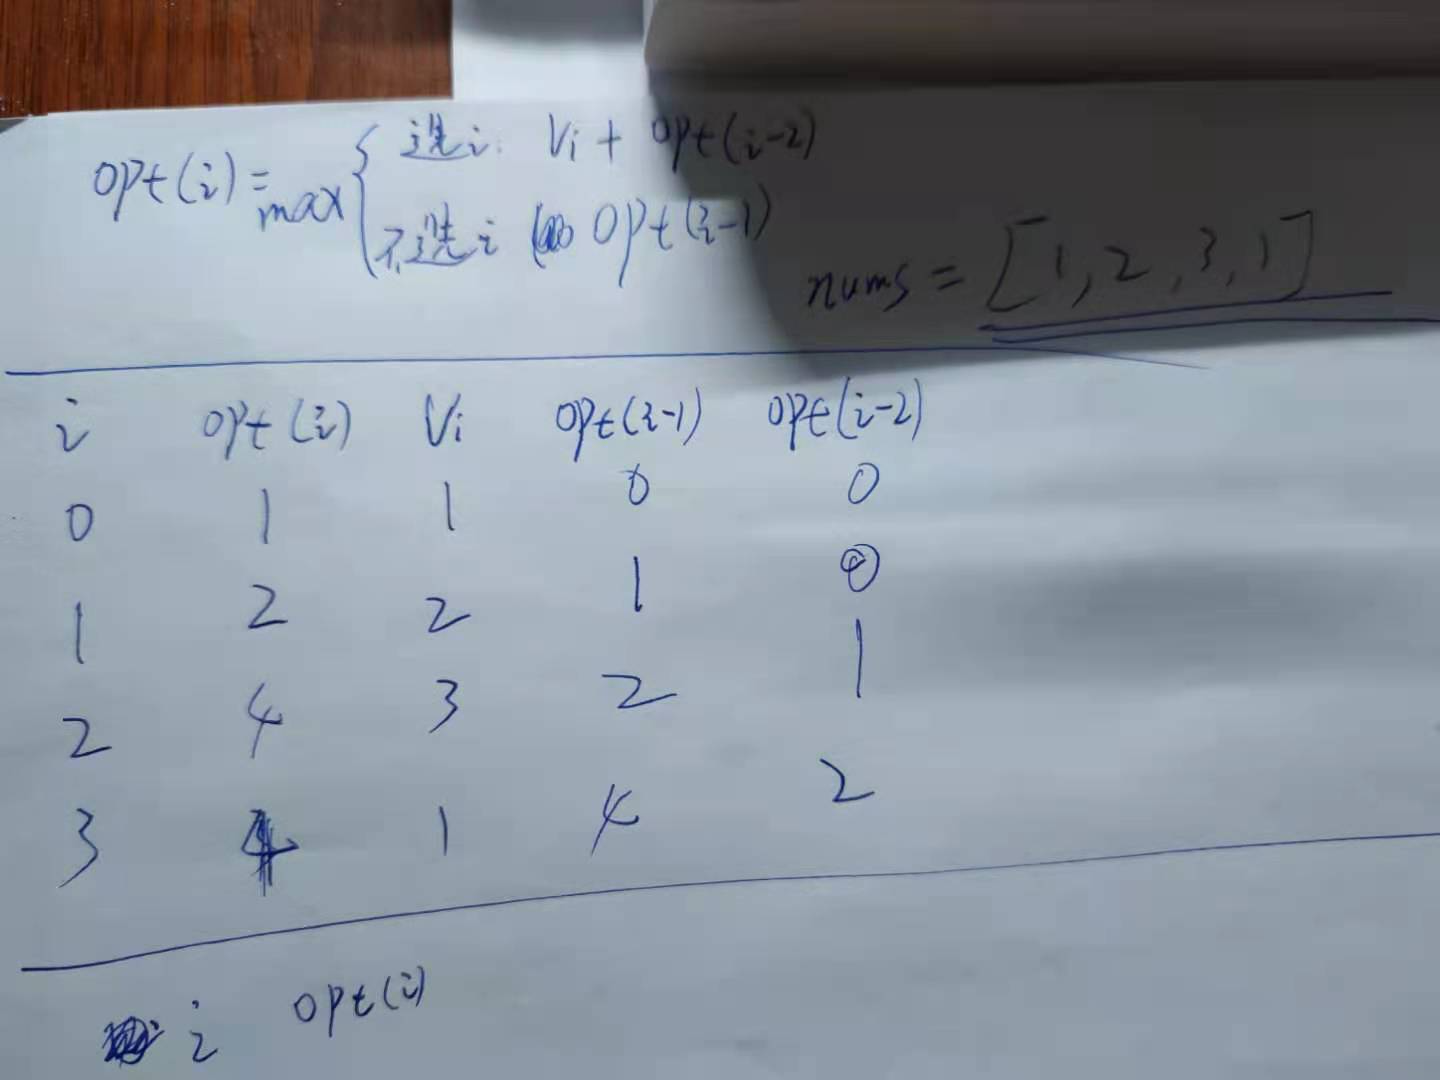 opt(i) = max { 选i. Vi + opt(i-2)
不选i opt(i-1)
nums = [1, 2, 3, 1]
i opt(i) Vi opt(i-1) opt(i-2)
0 1 1 0 0
1 2 2 1 0
2 4 3 2 1
3 4 1 4 2
i opt(i)